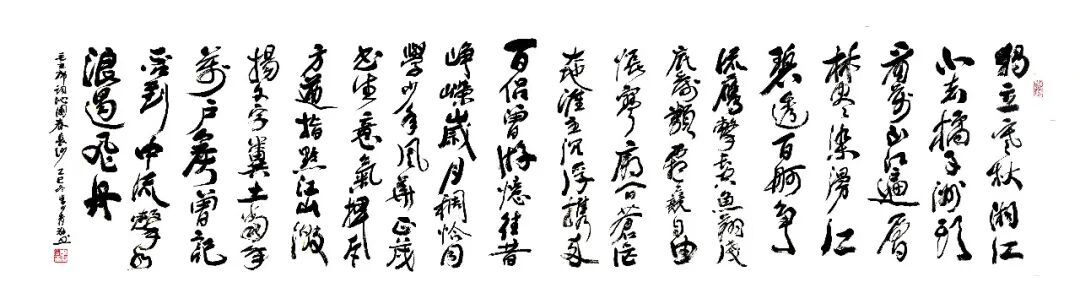 獨立寒秋湘江
北去橘子洲頭
看萬山紅遍層
林盡染漫江
碧透百舸爭
流鷹擊長魚翔浅
底萬類霜競自由
悵寥廓问蒼茫
誰主沉浮攜來
百侣曾游憶往昔
崢嶸歲月稠恰同
學少年風華正茂
书生意氣揮斥
方遒指點江山激
揚文字糞土當年
萬户矦曾記
否到中流擊水
浪遏飛舟
毛主席詞沁園春長沙乙巳冬